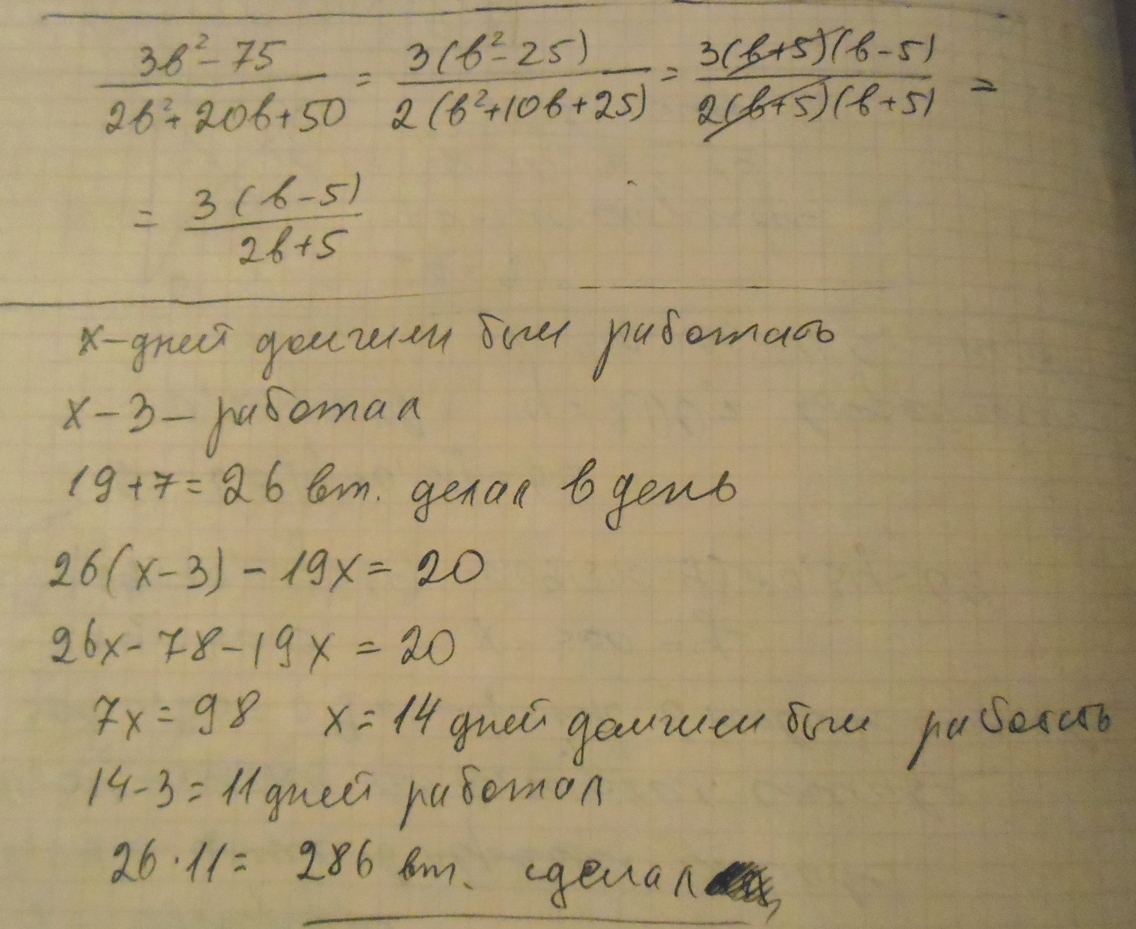 3в² - 75 / 2в² + 20в + 50 = 3(в² - 25) / 2(в² + 10в + 25) = 3(в+5)(в-5) / 2(в+5)(в+5) =
= 3(в-5) / 2в+5
х - дней должен был работать
х - 3 - работал
19 + 7 = 26 вт. делал в день
26(х-3) - 19х = 20
26х - 78 - 19х = 20
7х = 98 х = 14 дней должен был работать
14 - 3 = 11 дней работал
26 · 11 = 286 вт. сделал